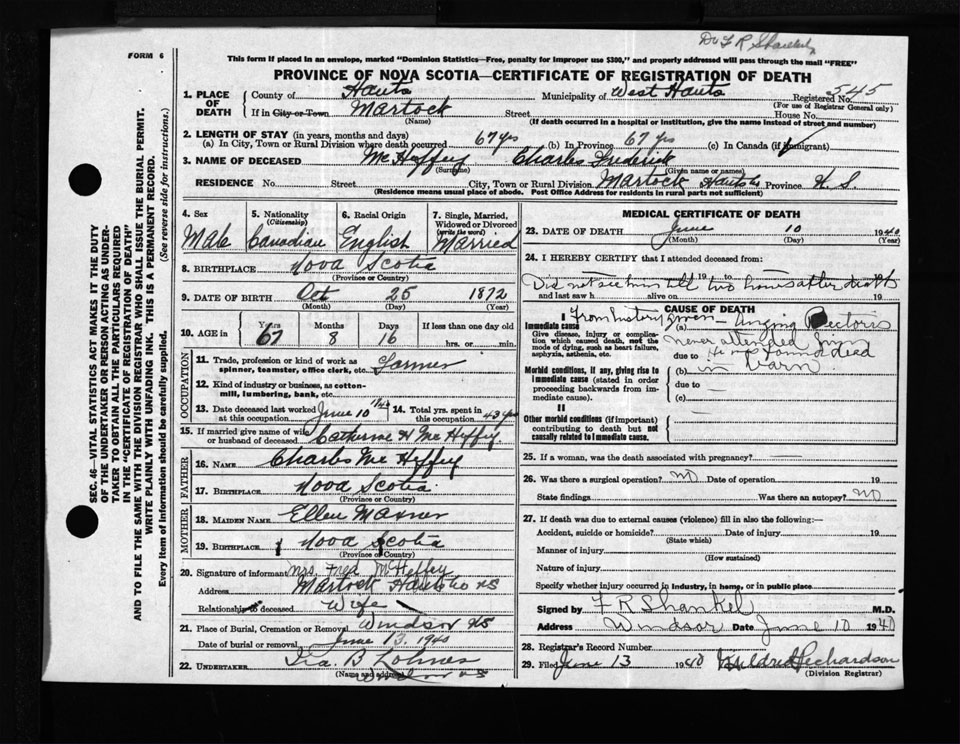 Dr F R Shankel
FORM 6
This form if placed in an envelope, marked "Dominion Statistics—Free, penalty for improper use $300," and properly addressed will pass through the mail "FREE"
PROVINCE OF NOVA SCOTIA—CERTIFICATE OF REGISTRATION OF DEATH
545
1. PLACE OF DEATH County of Hants Municipality of West Hants Registered No.
(For use of Registrar General only)
If in City or Town Martock Street House No.
(Name) (If death occurred in a hospital or institution, give the name instead of street and number)
2. LENGTH OF STAY (in years, months and days)
(a) In City, Town or Rural Division where death occurred 67 yrs (b) In Province 67 yrs (c) In Canada (if immigrant)
3. NAME OF DECEASED Mc Heffey Charles Frederick
(Surname) (Given name or names)
RESIDENCE No. Street City, Town or Rural Division Martock Hants Co, Province N S
(Residence means usual place of abode. Postoffice address for residents in rural parts not sufficient)
4. Sex Male
5. Nationality (Citizenship) Canadian
6. Racial Origin English
7. Single, Married, Widowed or Divorced (write the word) Married
8. BIRTHPLACE Nova Scotia
(Province or Country)
9. DATE OF BIRTH Oct 25 1872
(Month) (Day) (Year)
10. AGE in Years Months Days If less than one day old
67 8 16 hrs. or min.
OCCUPATION
11. Trade, profession or kind of work as spinner, teamster, office clerk, etc. Farmer
12. Kind of industry or business, as cotton-mill, lumbering, bank, etc.
13. Date deceased last worked at this occupation June 10
14. Total yrs. spent in this occupation 43 yrs
15. If married give name of wife or husband of deceased Catherine H Mc Heffey
FATHER
16. NAME Charles Mc Heffey
17. BIRTHPLACE Nova Scotia
(Province or Country)
MOTHER
18. MAIDEN NAME Ellen Maxner
19. BIRTHPLACE Nova Scotia
(Province or Country)
20. Signature of informant Mrs. Fred McHeffey
Address Martock Hants Co NS
Relationship to deceased Wife
21. Place of Burial, Cremation or Removal Windsor NS
Date of burial or removal June 13. 1940
22. UNDERTAKER Ira. B Lohnes
(Name and address) Windsor NS
MEDICAL CERTIFICATE OF DEATH
23. DATE OF DEATH June 10 1940
(Month) (Day) (Year)
24. I HEREBY CERTIFY that I attended deceased from:
19 to 19
Did not see him till two hours after death
and last saw h alive on 19
CAUSE OF DEATH
I From history given
Immediate cause (a) Angina Pectoris
Give disease, injury or complication which caused death, not the mode of dying, such as heart failure, asphyxia, asthenia, etc.
never attended him
due to He was found dead
Morbid conditions, if any, giving rise to immediate cause (stated in order proceeding backwards from immediate cause).
(b) in barn
due to
(c)
II
Other morbid conditions (if important) contributing to death but not causally related to immediate cause.
25. If a woman, was the death associated with pregnancy?
26. Was there a surgical operation? No Date of operation 19
State findings Was there an autopsy? No
27. If death was due to external causes (violence) fill in also the following:—
Accident, suicide or homicide? Date of injury 19
(State which)
Manner of injury
(How sustained)
Nature of injury
Specify whether injury occurred in industry, in home, or in public place
Signed by F R Shankel M.D.
Address Windsor Date June 10 1940
28. Registrar's Record Number
29. Filed June 13 1940 Mildred Richardson
(Division Registrar)
SEC. 46—VITAL STATISTICS ACT MAKES IT THE DUTY
OF THE UNDERTAKER OR PERSON ACTING AS UNDER-
TAKER TO OBTAIN ALL THE PARTICULARS REQUIRED
IN THE "CERTIFICATE OF REGISTRATION OF DEATH"
AND TO FILE THE SAME WITH THE DIVISION REGISTRAR WHO SHALL ISSUE THE BURIAL PERMIT.
WRITE PLAINLY WITH UNFADING INK. THIS IS A PERMANENT RECORD.
Every item of information should be carefully supplied. (See reverse side for instructions.)